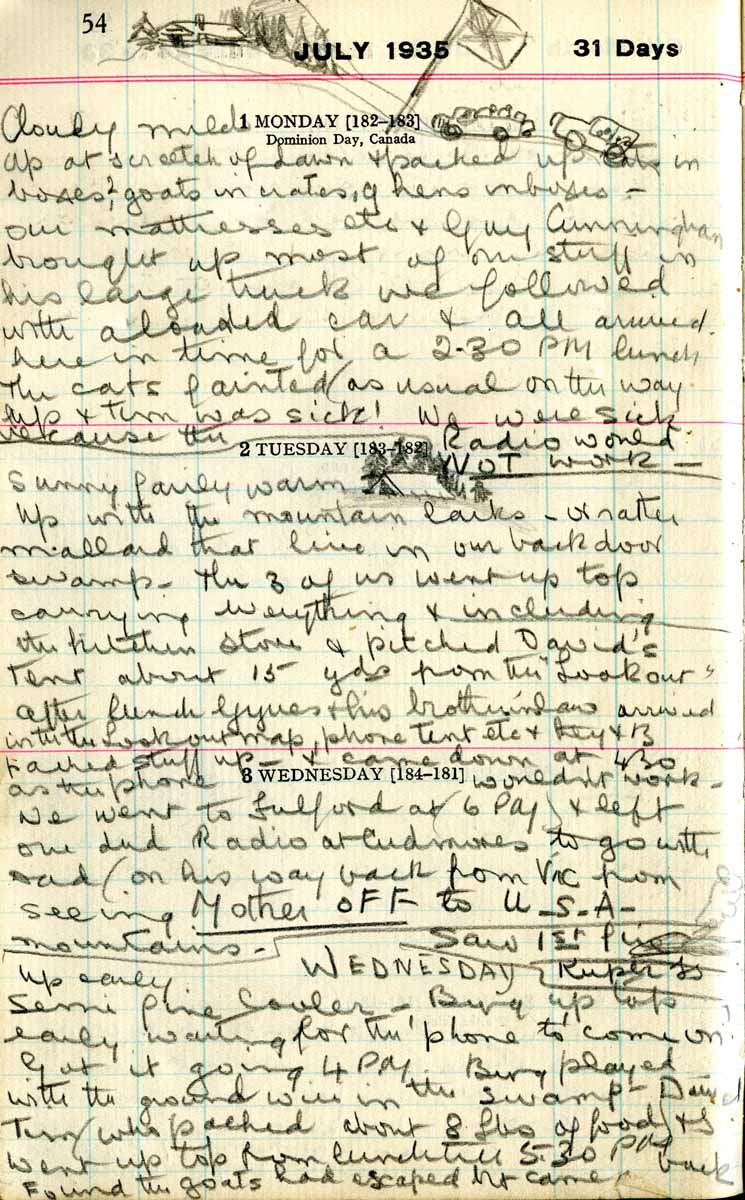 54
JULY 1935
31 Days
Cloudy mild
1 MONDAY [182-183]
Dominion Day, Canada
up at screetch of dawn & packed up cats in
boxes, 2 goats in crates, 9 hens in boxes -
our mattresses etc & Guy Cunningham
brought up most of our stuff in
his large truck we followed
with a loaded car & all arrived
here in time for a 2-30 PM lunch
The cats fainted (as usual on the way
up & Tim was sick! We were sick
because the
Radio would
NOT work -
2 TUESDAY [183-182]
Sunny fairly warm
Up with the mountain larks - or rather
mallard that live in our back door
swamp - The 3 of us went up top
carrying everything & including
the kitchen stove & pitched David's
Tent about 15 yds from the "Lookout"
After lunch Gynes & his brother in law arrived
with the Look out map, phone tent etc & they & B
packed stuff up - & came down at 430
as the phone
wouldn't work -
3 WEDNESDAY [184-181]
We went to Fulford at (6 PM) & left
our dud Radio at Cudmores to go with
Dad (on his way back from Vic from
seeing Mother OFF to U-S-A-
mountains -
Saw 1st fire
WEDNESDAY
Kuper Is
Up early
Semi fine Cooler - Bung up top
early waiting for the 'phone to 'come on'
Got it going 4 PM. Bung played
with the ground wire in the swamp - David
Tim (who packed about 8 lbs of food) & I
went up top from lunch till 5-30 PM
back
Found the goats had escaped but came